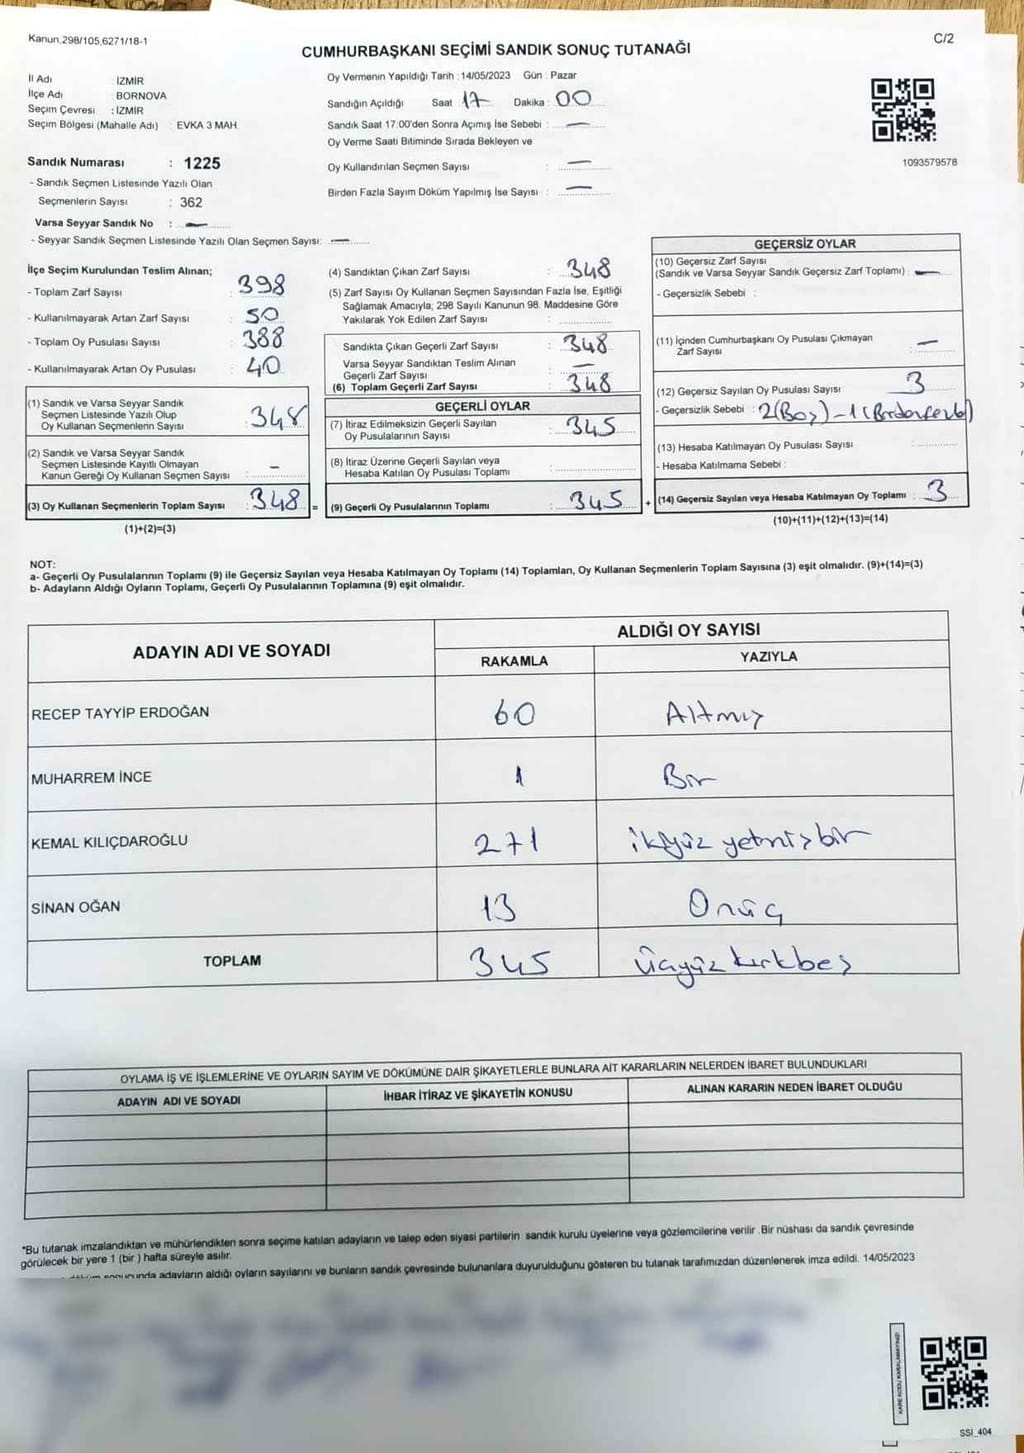 Kanun.298/105,6271/18-1
C/2
CUMHURBAŞKANI SEÇİMİ SANDIK SONUÇ TUTANAĞI
İl Adı : İZMİR
İlçe Adı : BORNOVA
Seçim Çevresi : İZMİR
Seçim Bölgesi (Mahalle Adı) : EVKA 3 MAH.
Oy Vermenin Yapıldığı Tarih : 14/05/2023 Gün : Pazar
Sandığın Açıldığı Saat : 17 Dakika : 00
Sandık Saat 17:00'den Sonra Açımış İse Sebebi : —
Oy Verme Saati Bitiminde Sırada Bekleyen ve
Oy Kullandırılan Seçmen Sayısı : —
Birden Fazla Sayım Döküm Yapılmış İse Sayısı : —
1093579578
Sandık Numarası : 1225
- Sandık Seçmen Listesinde Yazılı Olan
Seçmenlerin Sayısı : 362
Varsa Seyyar Sandık No : —
- Seyyar Sandık Seçmen Listesinde Yazılı Olan Seçmen Sayısı: —
İlçe Seçim Kurulundan Teslim Alınan;
- Toplam Zarf Sayısı : 398
- Kullanılmayarak Artan Zarf Sayısı : 50
- Toplam Oy Pusulası Sayısı : 388
- Kullanılmayarak Artan Oy Pusulası : 40
(1) Sandık ve Varsa Seyyar Sandık
Seçmen Listesinde Yazılı Olup
Oy Kullanan Seçmenlerin Sayısı : 348
(2) Sandık ve Varsa Seyyar Sandık
Seçmen Listesinde Kayıtlı Olmayan
Kanun Gereği Oy Kullanan Seçmen Sayısı : —
(3) Oy Kullanan Seçmenlerin Toplam Sayısı : 348 =
(1)+(2)=(3)
(4) Sandıktan Çıkan Zarf Sayısı : 348
(5) Zarf Sayısı Oy Kullanan Seçmen Sayısından Fazla İse, Eşitliği
Sağlamak Amacıyla; 298 Sayılı Kanunun 98. Maddesine Göre
Yakılarak Yok Edilen Zarf Sayısı :
Sandıkta Çıkan Geçerli Zarf Sayısı : 348
Varsa Seyyar Sandıktan Teslim Alınan
Geçerli Zarf Sayısı : —
(6) Toplam Geçerli Zarf Sayısı : 348
GEÇERLİ OYLAR
(7) İtiraz Edilmeksizin Geçerli Sayılan
Oy Pusulalarının Sayısı : 345
(8) İtiraz Üzerine Geçerli Sayılan veya
Hesaba Katılan Oy Pusulası Toplamı :
(9) Geçerli Oy Pusulalarının Toplamı : 345 +
GEÇERSİZ OYLAR
(10) Geçersiz Zarf Sayısı
(Sandık ve Varsa Seyyar Sandık Geçersiz Zarf Toplamı) : —
- Geçersizlik Sebebi :
(11) İçinden Cumhurbaşkanı Oy Pusulası Çıkmayan
Zarf Sayısı : —
(12) Geçersiz Sayılan Oy Pusulası Sayısı : 3
- Geçersizlik Sebebi : 2(Boş)-1(Birdenfazla)
(13) Hesaba Katılmayan Oy Pusulası Sayısı :
- Hesaba Katılmama Sebebi :
(14) Geçersiz Sayılan veya Hesaba Katılmayan Oy Toplamı : 3
(10)+(11)+(12)+(13)=(14)
NOT:
a- Geçerli Oy Pusulalarının Toplamı (9) ile Geçersiz Sayılan veya Hesaba Katılmayan Oy Toplamı (14) Toplamları, Oy Kullanan Seçmenlerin Toplam Sayısına (3) eşit olmalıdır. (9)+(14)=(3)
b- Adayların Aldığı Oyların Toplamı, Geçerli Oy Pusulalarının Toplamına (9) eşit olmalıdır.
ADAYIN ADI VE SOYADI
ALDIĞI OY SAYISI
RAKAMLA YAZIYLA
RECEP TAYYİP ERDOĞAN 60 Altmış
MUHARREM İNCE 1 Bir
KEMAL KILIÇDAROĞLU 271 ikiyüz yetmişbir
SİNAN OĞAN 13 Onüç
TOPLAM 345 üçyüz kırkbeş
OYLAMA İŞ VE İŞLEMLERİNE VE OYLARIN SAYIM VE DÖKÜMÜNE DAİR ŞİKAYETLERLE BUNLARA AİT KARARLARIN NELERDEN İBARET BULUNDUKLARI
ADAYIN ADI VE SOYADI İHBAR İTİRAZ VE ŞİKAYETİN KONUSU ALINAN KARARIN NEDEN İBARET OLDUĞU
*Bu tutanak imzalandıktan ve mühürlendikten sonra seçime katılan adayların ve talep eden siyasi partilerin sandık kurulu üyelerine veya gözlemcilerine verilir .Bir nüshası da sandık çevresinde
görülecek bir yere 1 (bir ) hafta süreyle asılır.
adayların aldığı oyların sayılarını ve bunların sandık çevresinde bulunanlara duyurulduğunu gösteren bu tutanak tarafımızdan düzenlenerek imza edildi. 14/05/2023
KARE KODU KARALAMAYINIZ!
SSI_404